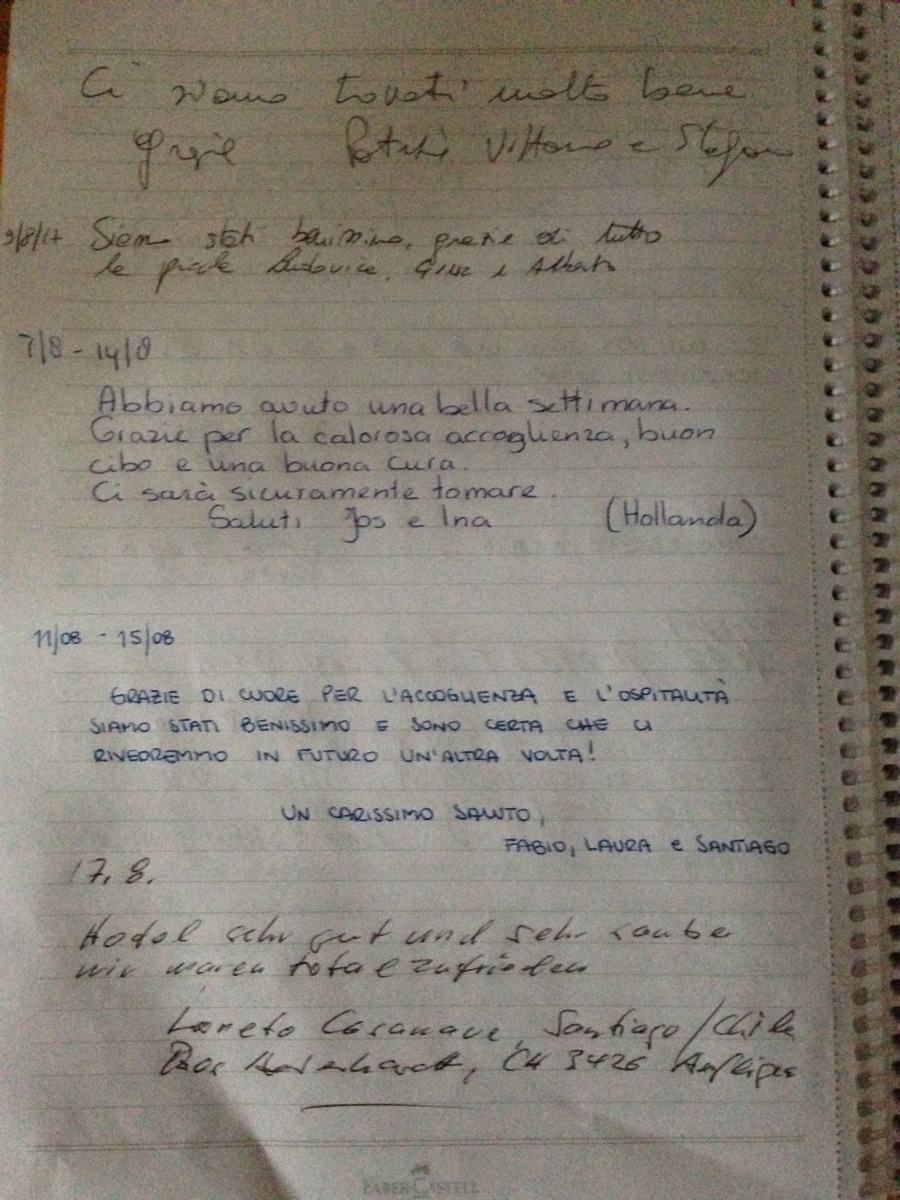 Ci siamo trovati molto bene
Grazie Vittorio e Stefano
9/8/17 Siamo stati benissimo, grazie di tutto
la piccola Ludovica, e Alberto
7/8 - 14/8
Abbiamo avuto una bella settimana.
Grazie per la calorosa accoglienza, buon
cibo e una buona cura.
Ci sarà sicuramente tornare.
Saluti Jos e Ina (Hollanda)
11/08 - 15/08
GRAZIE DI CUORE PER L'ACCOGLIENZA E L'OSPITALITÀ
SIAMO STATI BENISSIMO E SONO CERTA CHE CI
RIVEDREMMO IN FUTURO UN'ALTRA VOLTA!
UN CARISSIMO SALUTO,
FABIO, LAURA e SANTIAGO
17. 8.
Hotel sehr gut und sehr sauber
wir waren total zufrieden
Loreto Casanave, Santiago / Chile
CH 3426 Aefligen
FABER-CASTELL